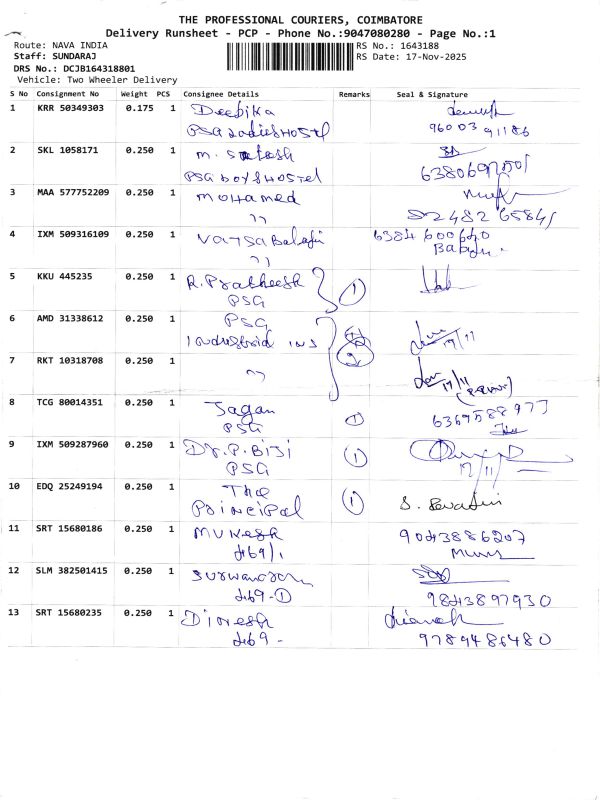 THE PROFESSIONAL COURIERS, COIMBATORE
Delivery Runsheet - PCP - Phone No.:9047080280 - Page No.:1
Route: NAVA INDIA
RS No.: 1643188
Staff: SUNDARAJ
RS Date: 17-Nov-2025
DRS No.: DCJB164318801
Vehicle: Two Wheeler Delivery
S No Consignment No Weight PCS Consignee Details Remarks Seal & Signature
1 KRR 50349303 0.175 1 Deepika
PSG Ladies Hostel 96003 91186
2 SKL 1058171 0.250 1 M. Satesh
PSG boys Hostel 6380697501
3 MAA 577752209 0.250 1 Mohamed
" 82482 65841
4 IXM 509316109 0.250 1 Vatsa Balaji 6384 600640
"
5 KKU 445235 0.250 1 R. Prabheesh 1
PSG
6 AMD 31338612 0.250 1 PSG
Industrial Ins 2 17/11
7 RKT 10318708 0.250 1 " 17/11
8 TCG 80014351 0.250 1 Jagan 1 6369588977
PSG
9 IXM 509287960 0.250 1 Dr. P. Biji 1
PSG 17/11
10 EDQ 25249194 0.250 1 The 1
Principal
11 SRT 15680186 0.250 1 Mukesh 9043886207
469/1
12 SLM 382501415 0.250 1
469-1 9843897930
13 SRT 15680235 0.250 1 Dinesh
469 - 9789486480